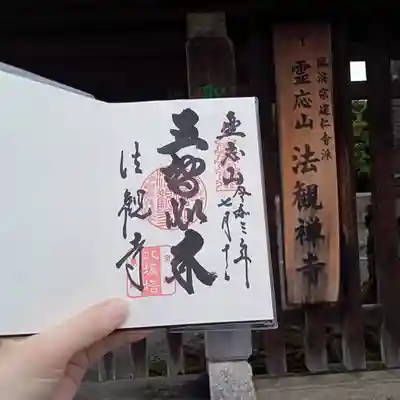 霊応山
令和三年
七月十二
五智如来
法観寺
八坂塔
臨済宗建仁寺派
霊応山 法観禅寺